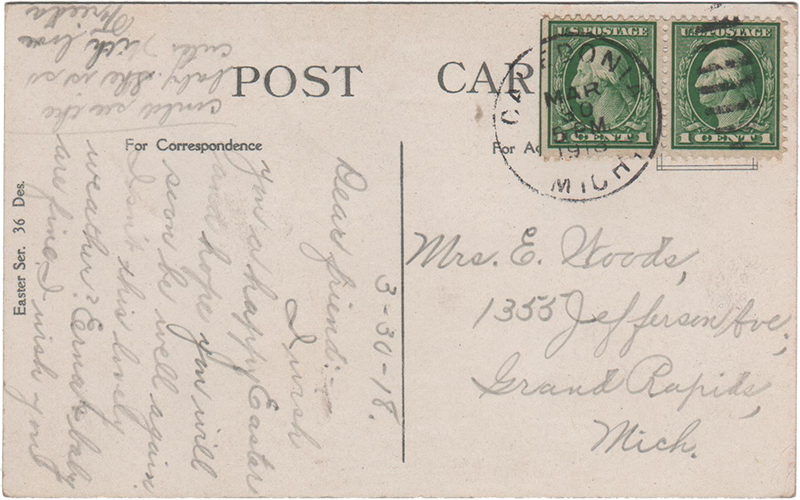 POST CARD
For Correspondence
Easter Ser. 36 Des.
U.S. POSTAGE
1 CENT 1
U.S. POSTAGE
1 CENT 1
CALEDONIA
MAR
30
5 PM
1918
MICH.
3-30-18.
Dear friend:-
I wish
you a happy Easter
and hope you will
soon be well again.
Isn't this lovely
weather? Erna & baby
are fine, I wish you
could see the
baby. She is so
cute. With love
Frieda
Mrs. E. Woods,
1355 Jefferson Ave,
Grand Rapids,
Mich.